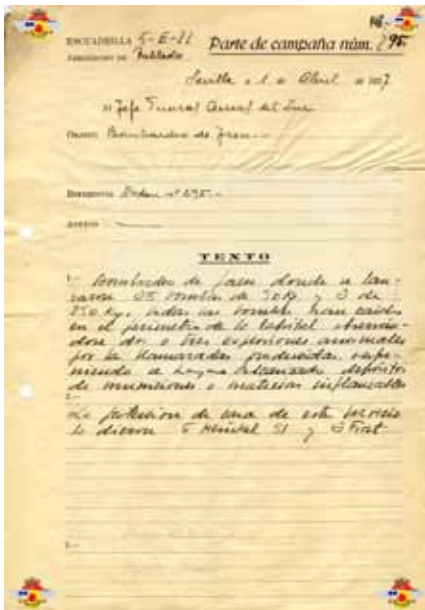 ESCUADRILLA 5-E-21
Parte de campaña núm. 295.
AERODROMO DE Tablada
Sevilla a 1 de Abril de 1937
Al Jefe Aereal del Sur
OBJETO: Bombardeo de Jaen
Orden nº 295.-
TEXTO
1.- Bombardeo de Jaen donde se lan-
zaron 25 bombas de 50 K y 3 de
250 Kg. todas las bombas han caido
en el perimetro de la capital observan-
dose dos o tres explosiones anormales
por las llamaradas producidas, supo-
niendo se haya alcanzado depositos
de municiones o materias inflamables
2.-
La proteccion de caza de este servicio
la dieron 5 Heinkel 51 y 3 Fiat
3.-